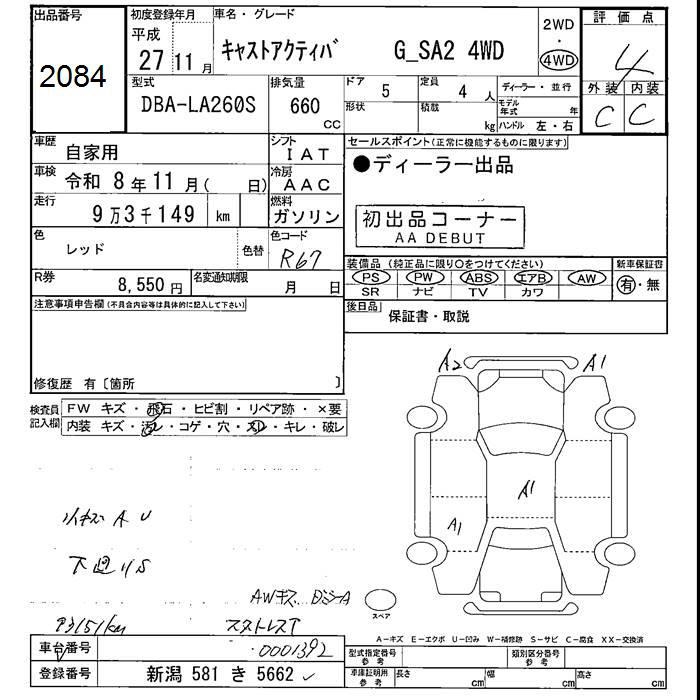 出品番号
2084
初度登録年月
平成
27 11 月
車名・グレード
キャストアクティバ G_SA2 4WD
2WD
・
4WD
評価点
4
外装 内装
C C
型式
DBA-LA260S
排気量
660
cc
ドア 5
定員 4 人
形状
積載 kg
ディーラー・並行
モデル年式 年
ハンドル 左・右
車歴 自家用
シフト IAT
車検 令和 8 年 11 月 ( 日)
冷房 AAC
走行 9 万 3 千 149 km
燃料 ガソリン
色 レッド 色替
色コード R67
R券 8,550 円
名変通知期限 月 日
セールスポイント(正常に機能するものに限ります)
●ディーラー出品
初出品コーナー
AA DEBUT
装備品 (純正品に限り○をつけてください)
PS PW ABS エアB AW
SR ナビ TV カワ
新車保証書
有・無
後日品 保証書・取説
注意事項申告欄 (不具合内容等は具体的に記入して下さい)
修復歴 有 〔箇所 〕
検査員記入欄
FW キズ・飛石・ヒビ割・リペア跡・×要
内装 キズ・汚レ・コゲ・穴・スレ・キレ・破レ
A2 A1
A1
A1
小キズ A U
下廻り S
AWキズ
93151km
スタトレスT
スペア
A-キズ E-エクボ U-凹み W-補修跡 S-サビ C-腐食 XX-交換済
車台番号 0001392
登録番号 新潟 581 き 5662
型式指定番号 参考
類別区分番号 参考
車庫証明用 参考 長さ cm 幅 cm 高さ cm